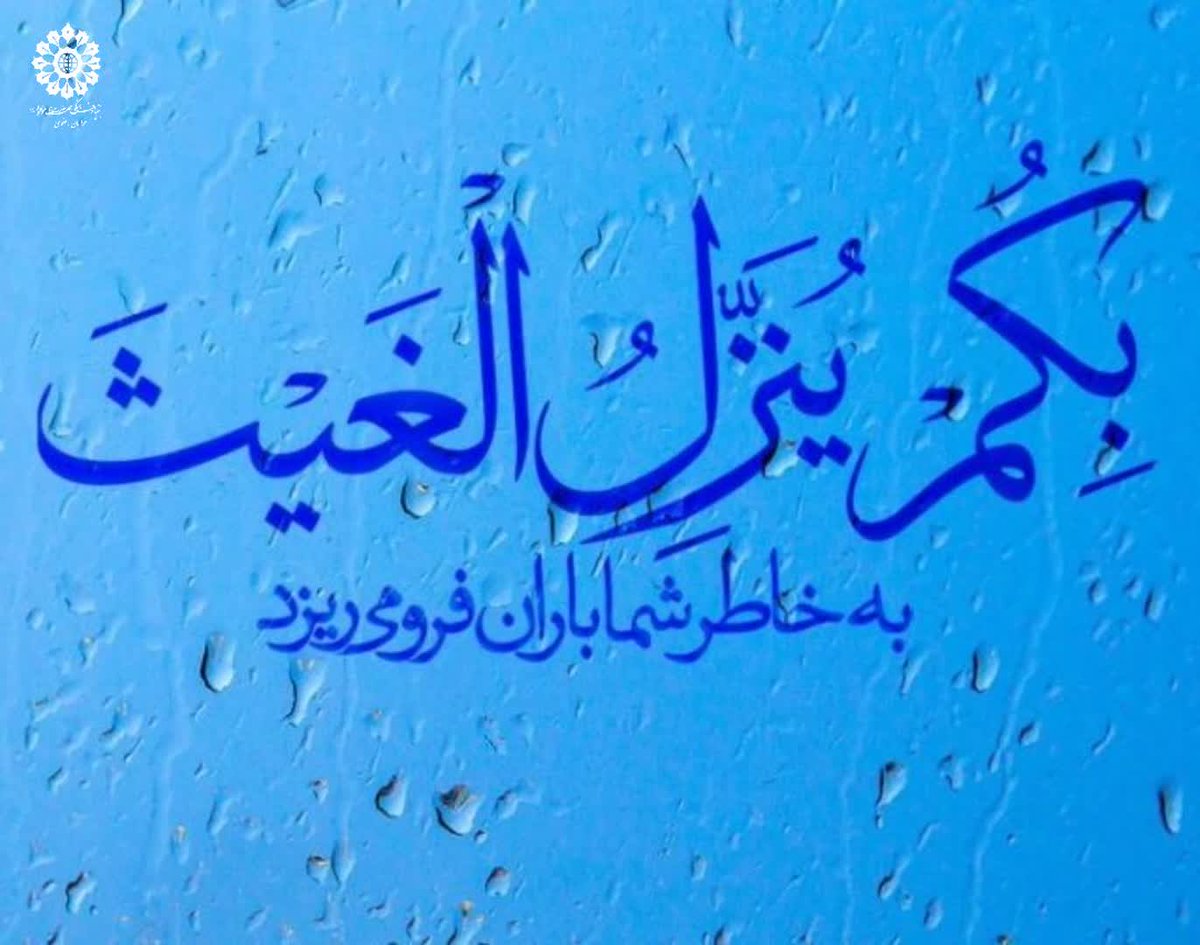 بِكُمْ يُنَزِّلُ الْغَيْثَ
به خاطر شما باران فرو می ریزد